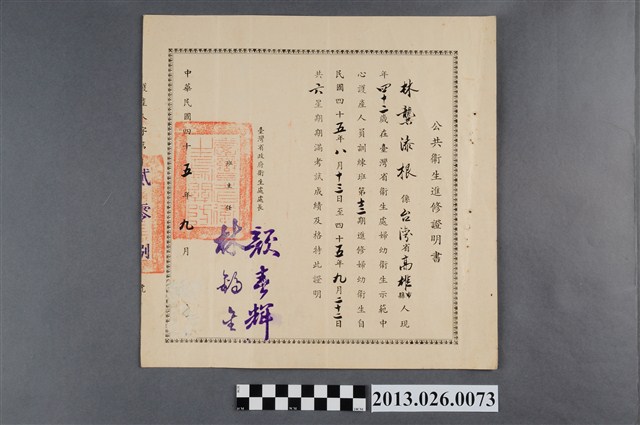 公共衛生進修證明書
林龔添根係台灣省高雄市縣人現
年四十二歲在臺灣省衛生處婦幼衛生示範中
心護產人員訓練班第三期進修婦幼衛生自
民國四十五年八月十三日至四十五年九月二十二日
共六星期期滿考試成績及格特此證明
臺灣省政府衛生處處長
顏春輝
班主任
中華民國四十五年九月
2013.026.0073